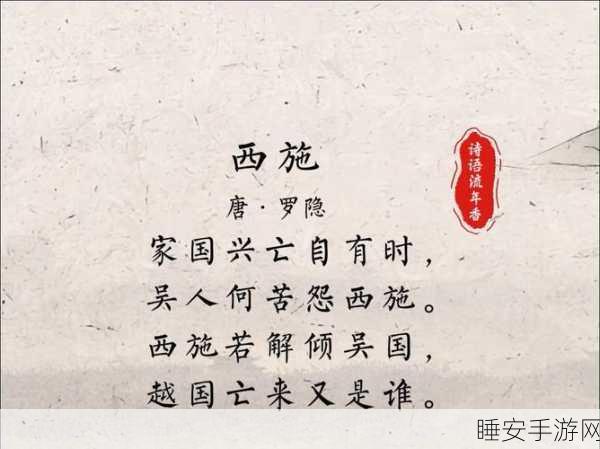 西施
唐·罗隐
家国兴亡自有时，
吴人何苦怨西施。
西施若解倾吴国，
越国亡来又是谁。
诗语流年香
睡安手游网